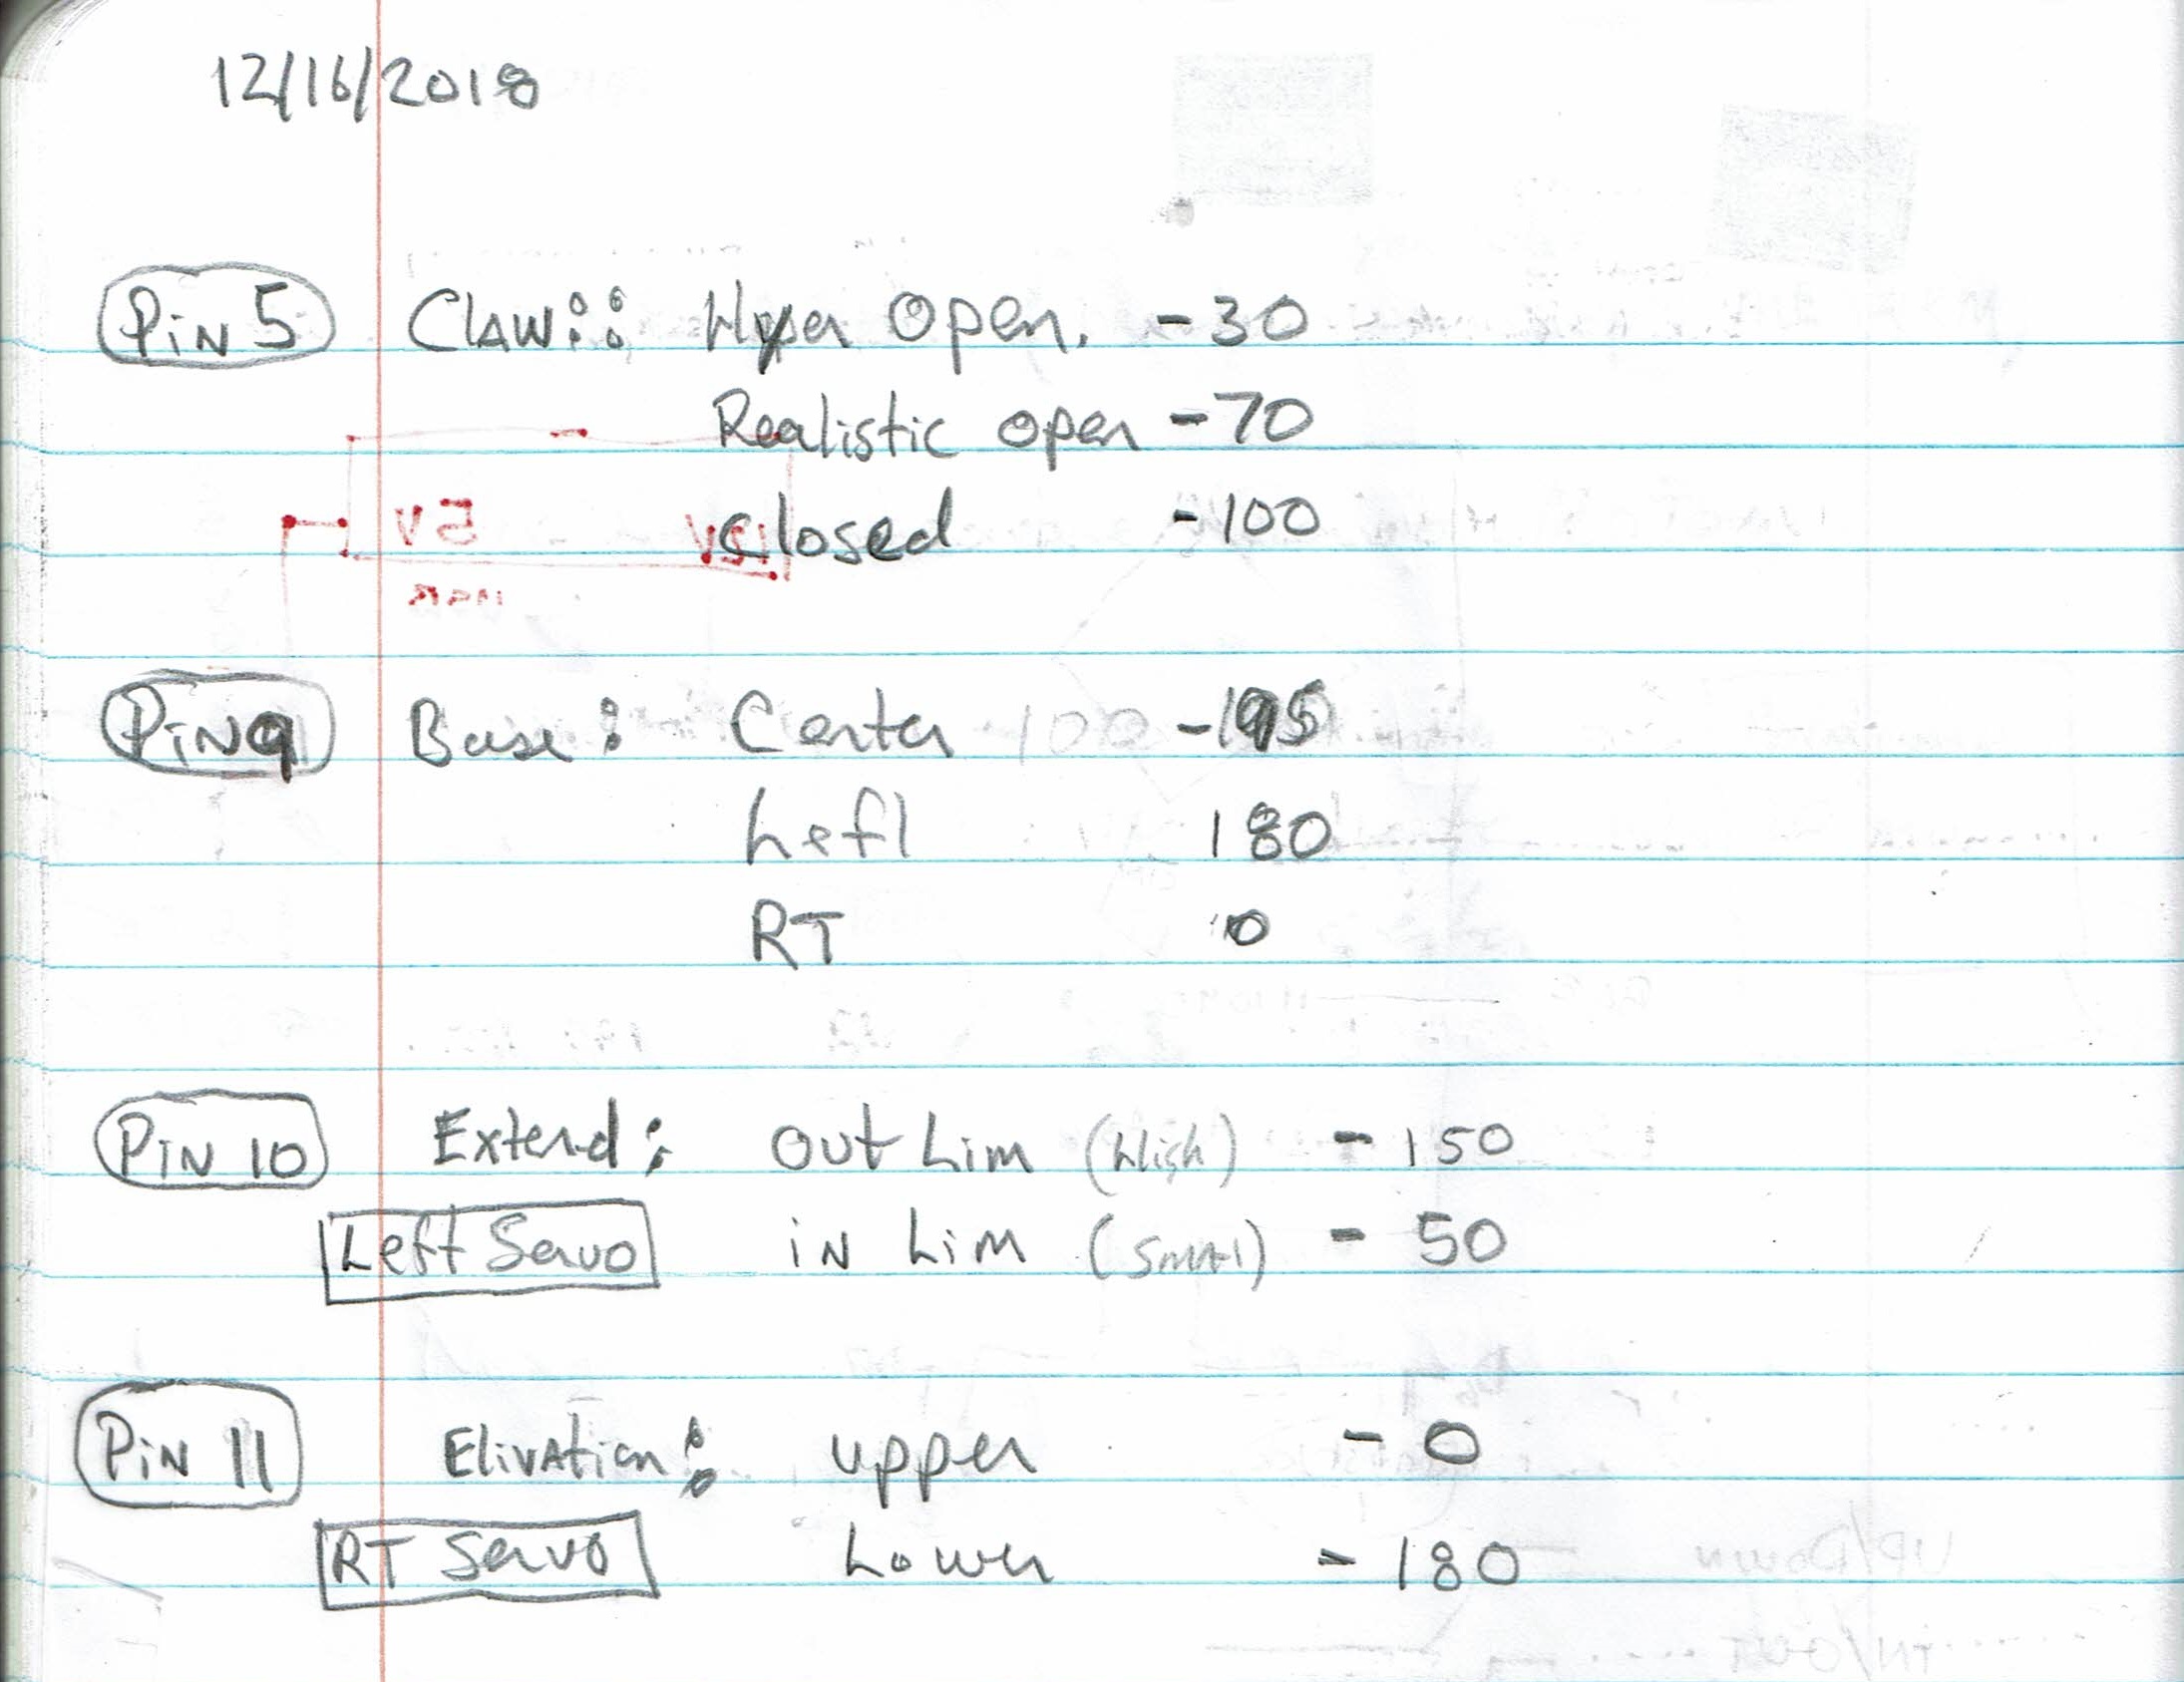 12/16/2018
Pin 5 Claw: Hyper Open. - 30
Realistic open - 70
Closed - 100
Pin 9 Base: Center - 95
Left 180
RT 0
Pin 10 Extend: Out Lim (High) - 150
Left Servo in Lim (Smal) - 50
Pin 11 Elivation: upper - 0
RT Servo Lower - 180